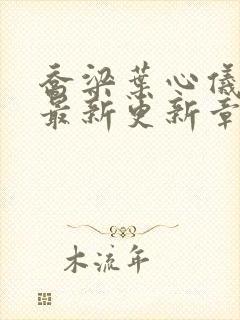 乔梁葉心儀
最新更新章
木流年